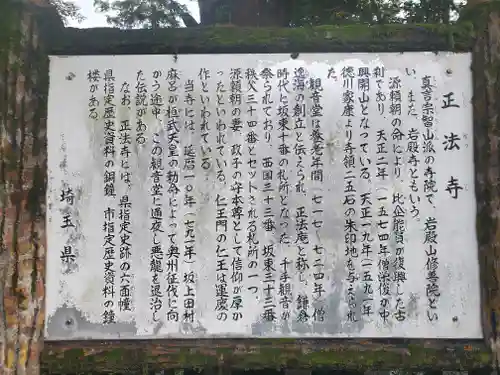 正法寺
真言宗智山派の寺院で、岩殿山修善院とい
い、また、岩殿寺ともいう。
源頼朝の命により、比企能員が復興した古
刹であり、天正二年（一五七四年）僧栄俊が中
興開山となっている。天正一九年（一五九一年）
徳川家康より寺領二五石の朱印地を与えられ
た。
観音堂は養老年間（七一七～七二四年）僧
逸海の創立と伝えられ、正法庵と称し、鎌倉
時代に坂東十番の札所となった。千手観音が
祭られており、西国三十三番、坂東三十三番
秩父三十四番とセットされる札所の一つ。
源頼朝の妻、政子の守本尊として信仰が厚か
ったといわれている。仁王門の仁王は運慶の
作といわれている。
当寺には、延暦一〇年（七九一年）坂上田村
麻呂が桓武天皇の勅命によって奥州征伐に向
かう途中、この観音堂に通夜し悪龍を退治し
た伝説がある。
なお、正法寺には、県指定史跡の六面幢
県指定歴史資料の銅鐘、市指定歴史資料の鐘
楼がある。
埼玉県